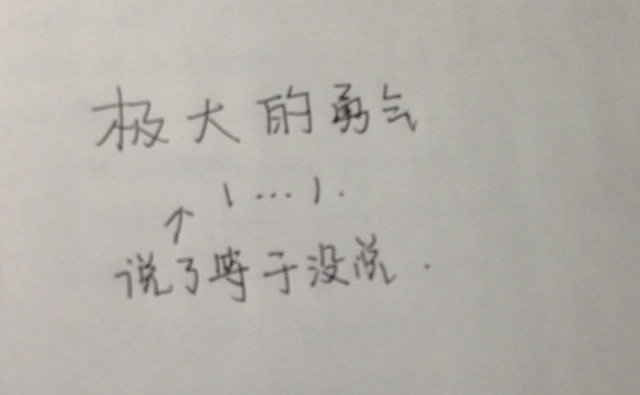 极大的勇气
↑ \ ... ) .
说了等于没说.